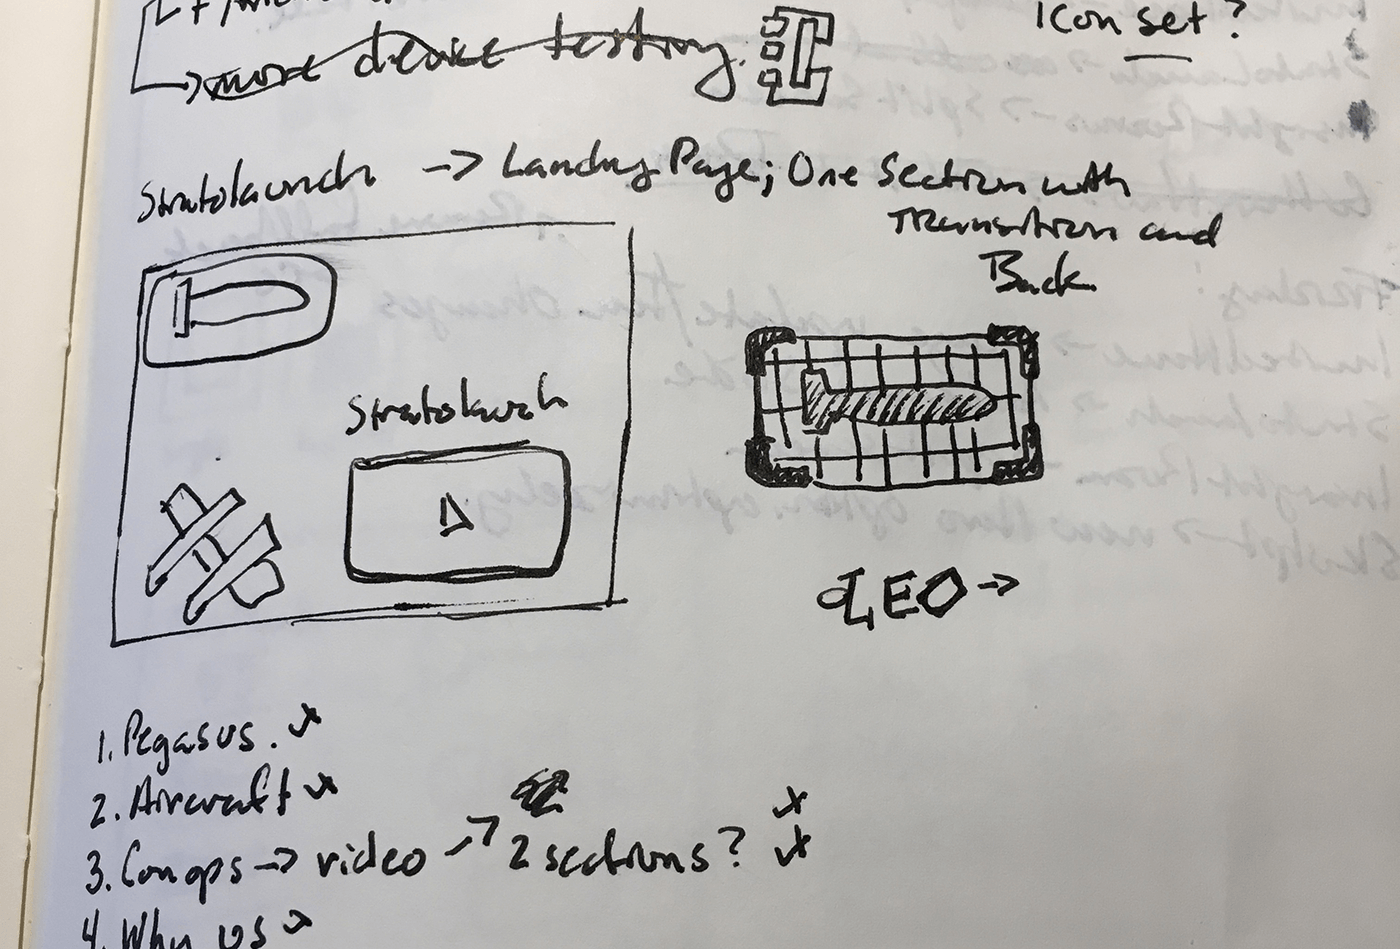 Icon set?
more device testing.
Stratolaunch -> Landing Page; One Section with
Transition and
Back
Stratolaunch
LEO ->
1. Pegasus.
2. Aircraft
3. Conops -> video -> 2 sections?
4. Why us